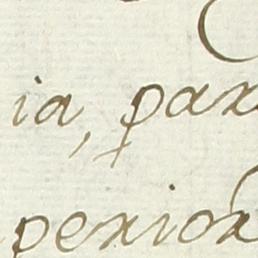 ia, par
perior